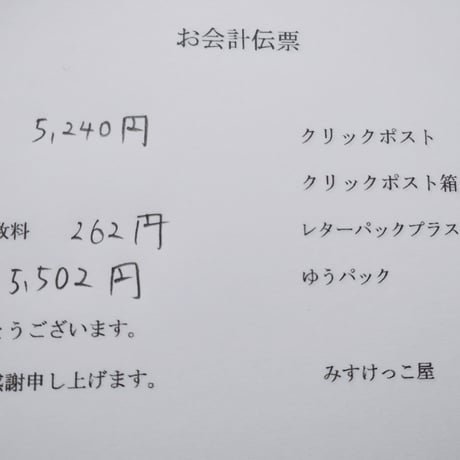 お会計伝票
5,240円
クリックポスト
クリックポスト箱
数料 262円
レターパックプラス
5,502円
ゆうパック
とうございます。
感謝申し上げます。
みすけっこ屋